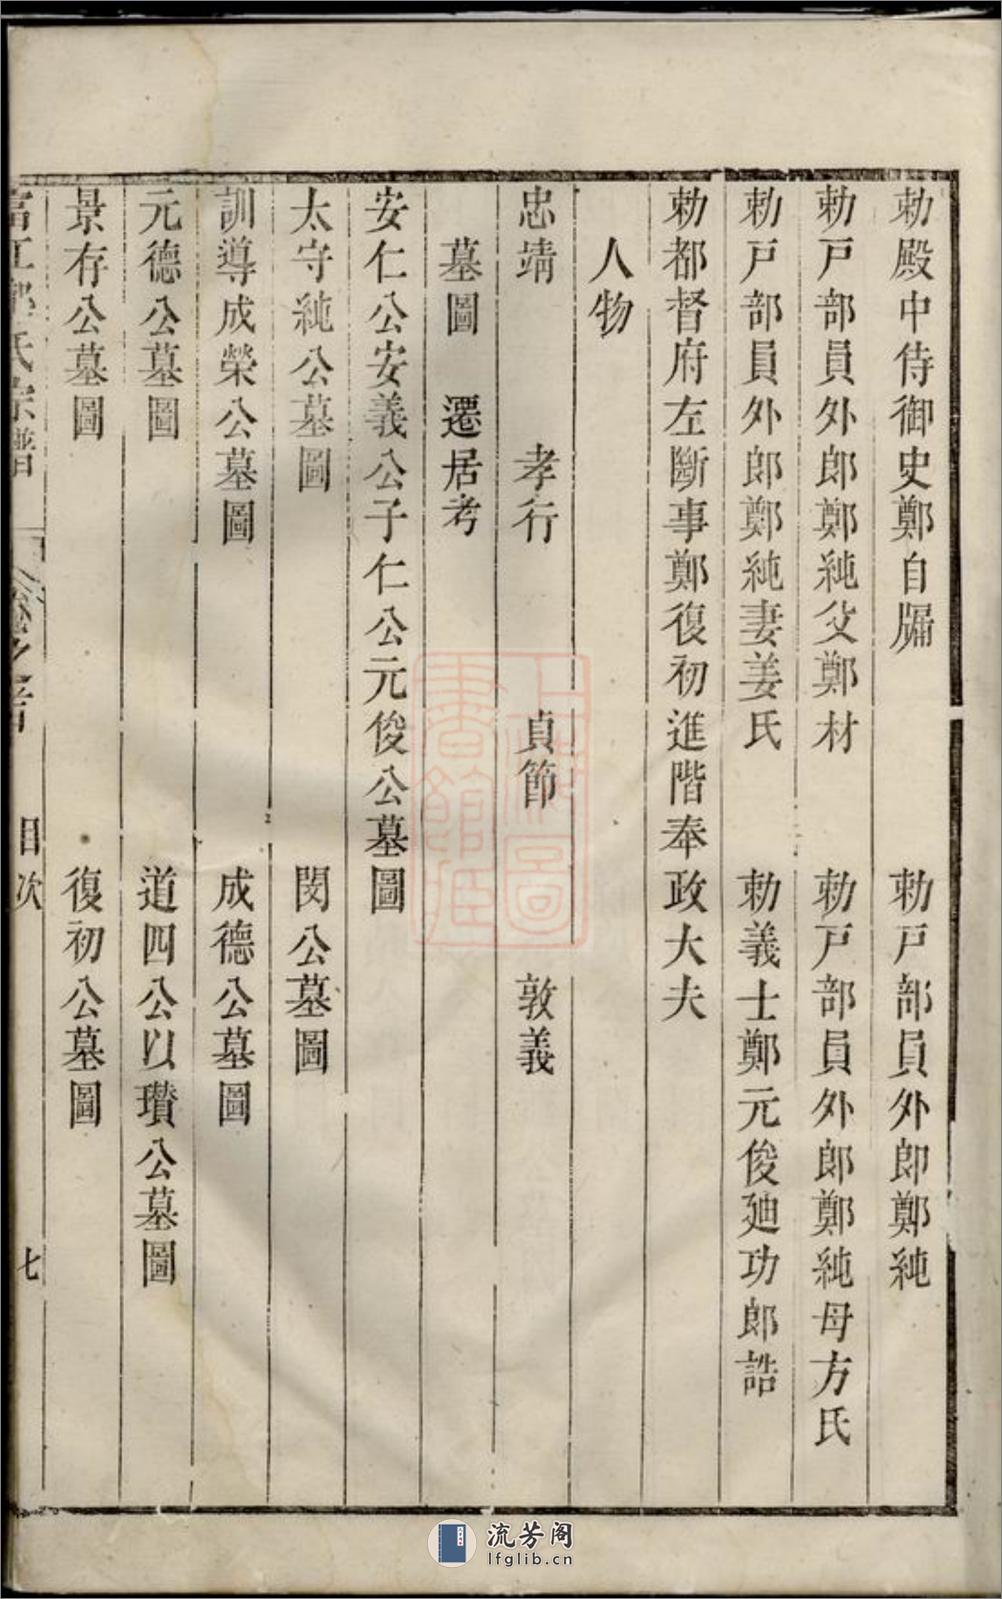 勅殿中侍御史鄭自牖　勅戸部員外郎鄭純
勅戸部員外郎鄭純父鄭材　勅戸部員外郎鄭純母方氏
勅戸部員外郎鄭純妻姜氏　勅義士鄭元俊廸功郎誥
勅都督府左斷事鄭復初進階奉政大夫
人物
忠靖　孝行　貞節　敦義
墓圖　遷居考
安仁公安義公子仁公元俊公墓圖
太守純公墓圖　閔公墓圖
訓導成榮公墓圖　成德公墓圖
元德公墓圖　道四公以瓚公墓圖
景存公墓圖　復初公墓圖
氏宗譜　卷之首　目次　七
流芳阁
lfglib.cn